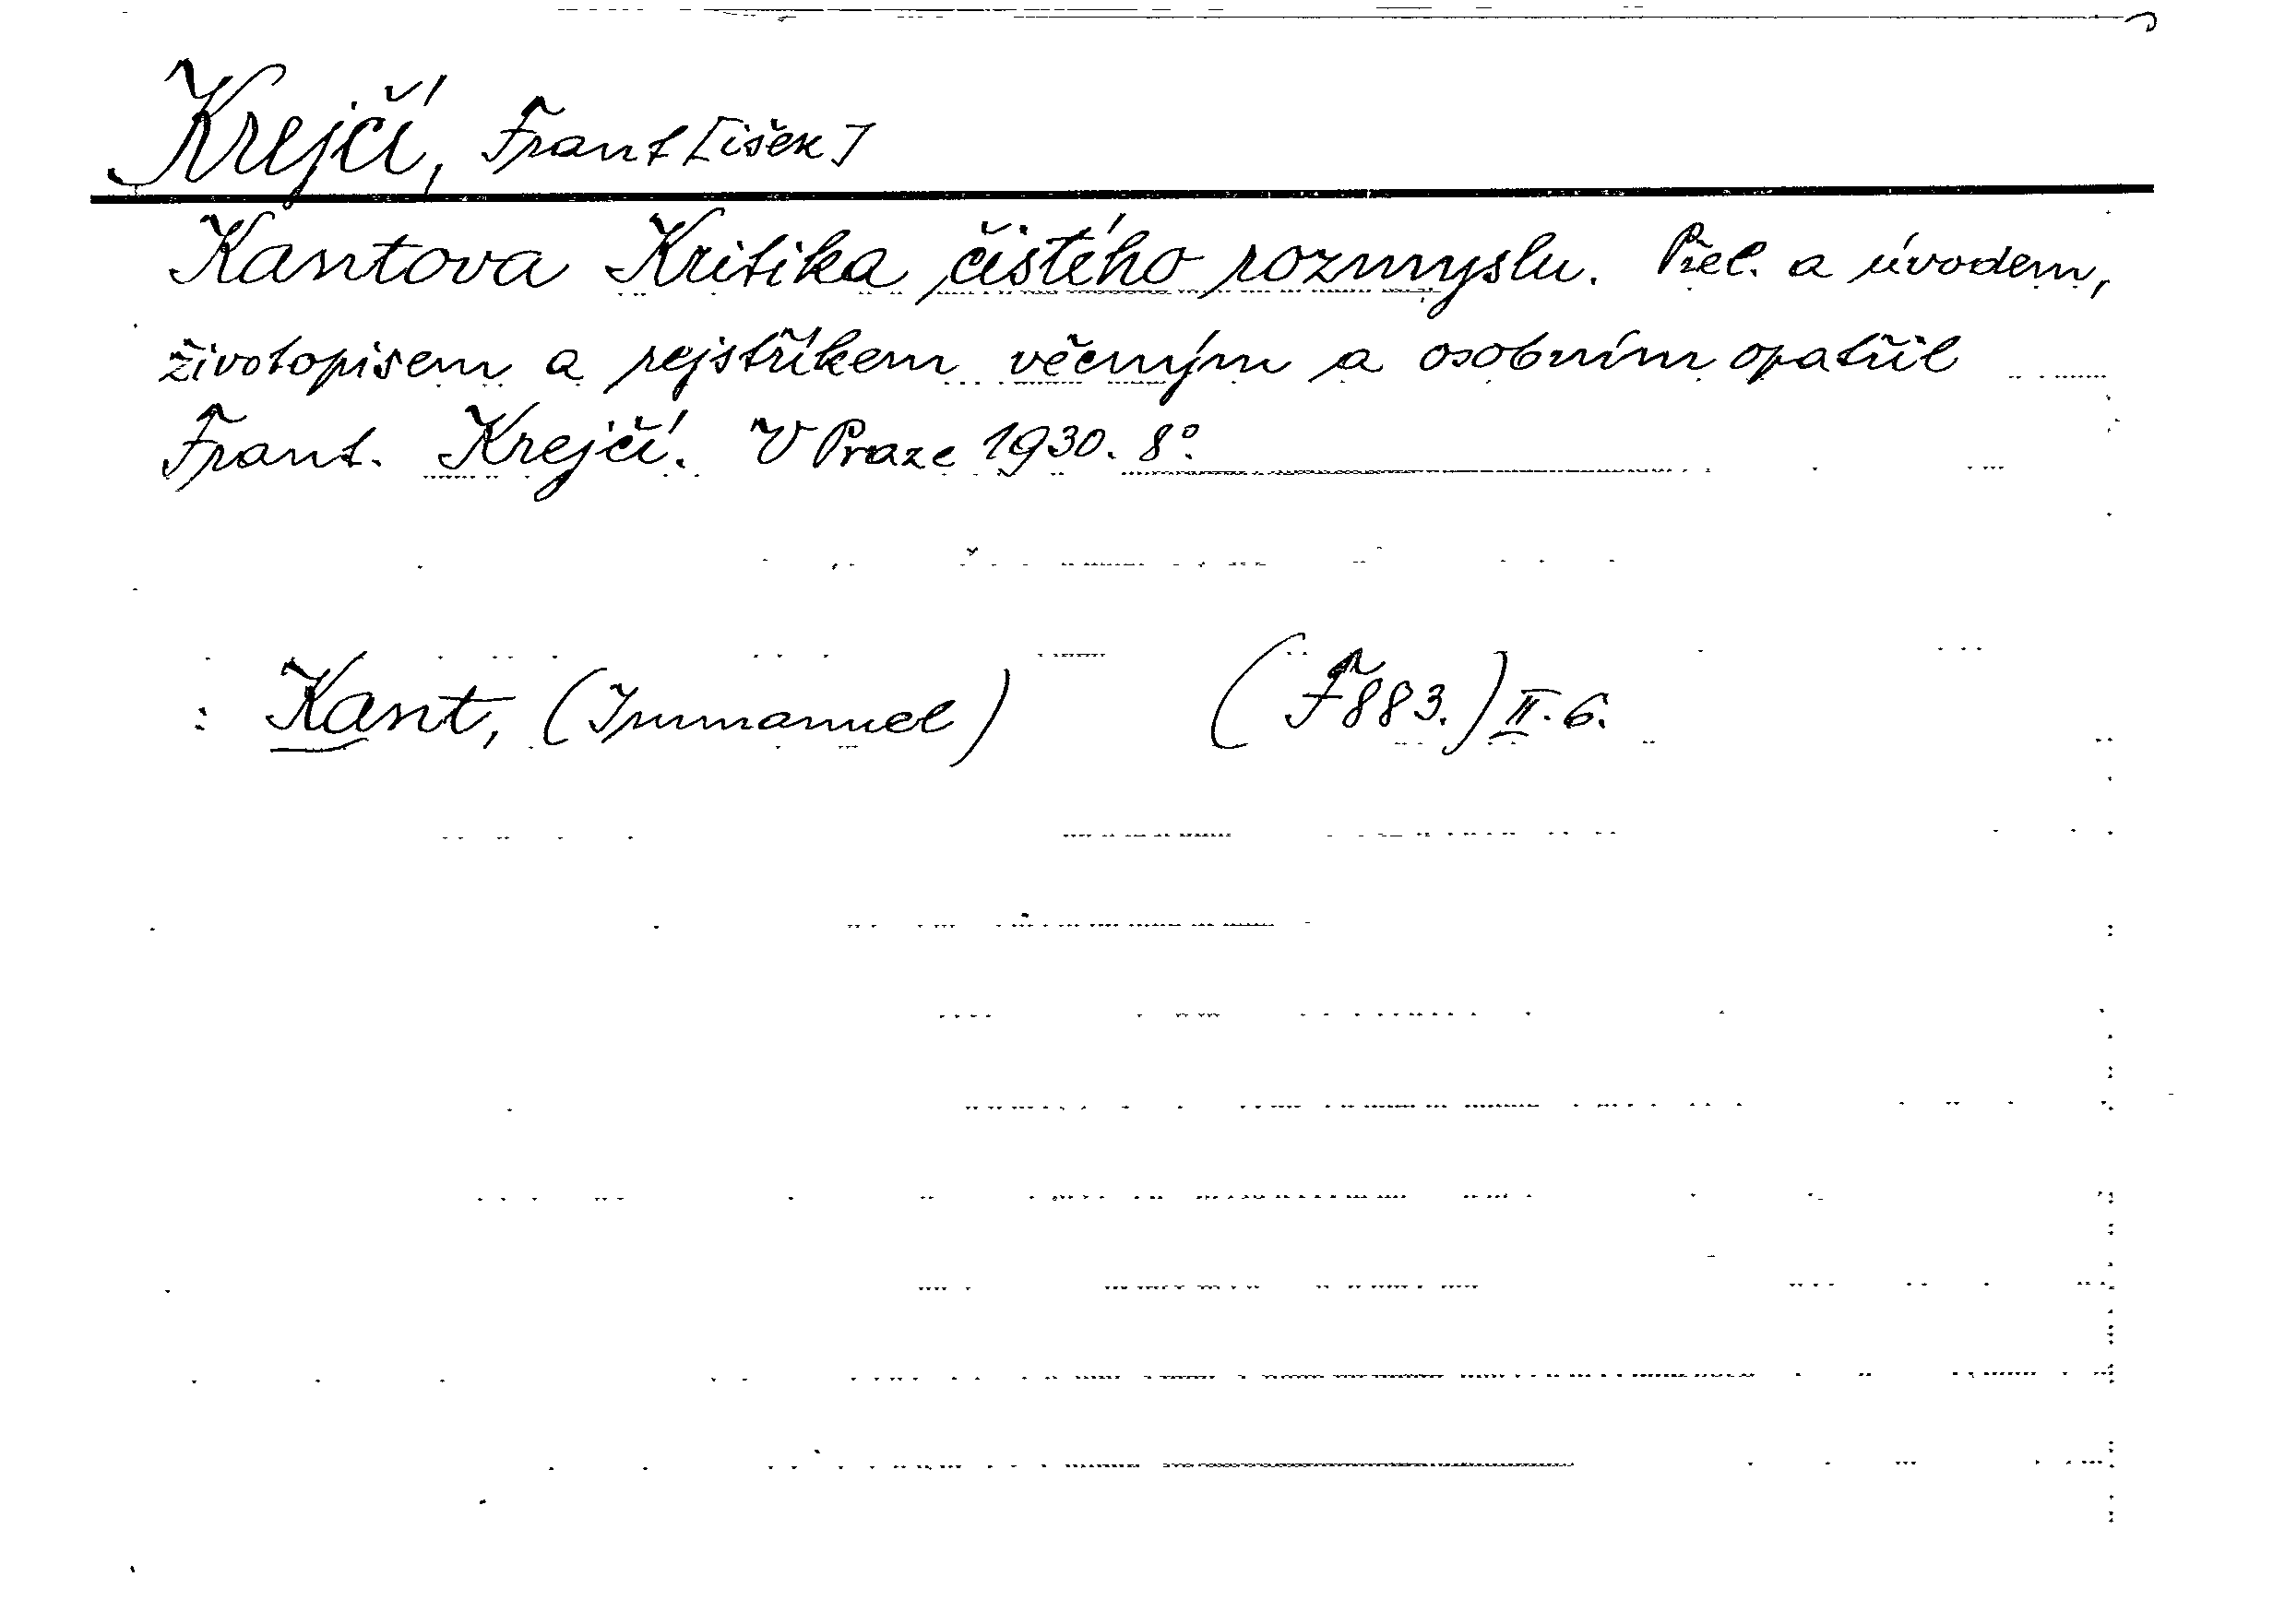 Krejčí, Frant[išek]
Kantova Kritika čistého rozmyslu. Přel. a úvodem,
životopisem a rejstříkem věcným a osobním opatřil
Frant. Krejčí. V Praze 1930. 8°.
: Kant, (Immanuel) (F883.) II. 6.